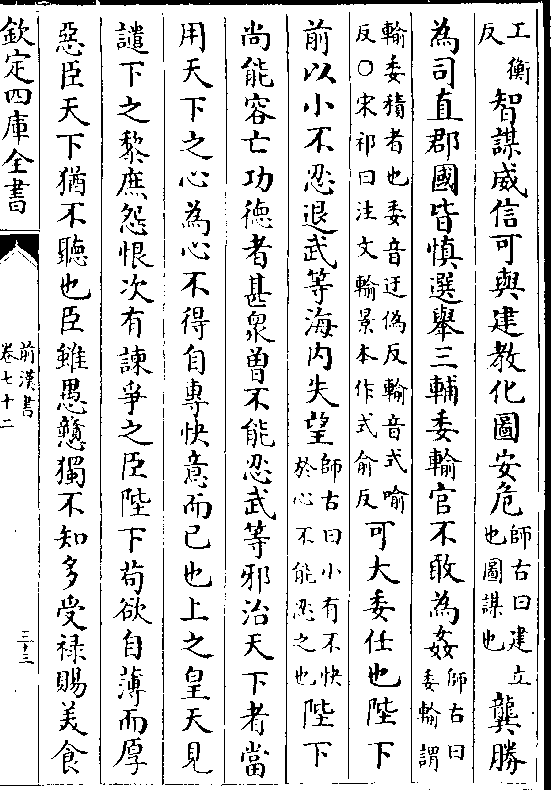 工衡
反
智謀威信可與建教化圖安危
師古曰建立
也圖謀也
龔勝
為司直郡國皆慎選舉三輔委輸官不敢為姦
師古曰
委輸謂
輸委積者也委音迂偽反輸音式喻
反○宋祁曰注文輸景本作式俞反
可大委任也陛下
前以小不忍退武等海内失望
師古曰小有不快
於心不能忍之也
陛下
尚能容亡功德者甚衆曽不能忍武等邪治天下者當
用天下之心為心不得自專快意而已也上之皇天見
譴下之黎庶怨恨次有諫爭之臣陛下苟欲自薄而厚
惡臣天下猶不聽也臣雖愚戇獨不知多受祿賜美食
欽定四庫全書
前漢書
卷七十二
三十三